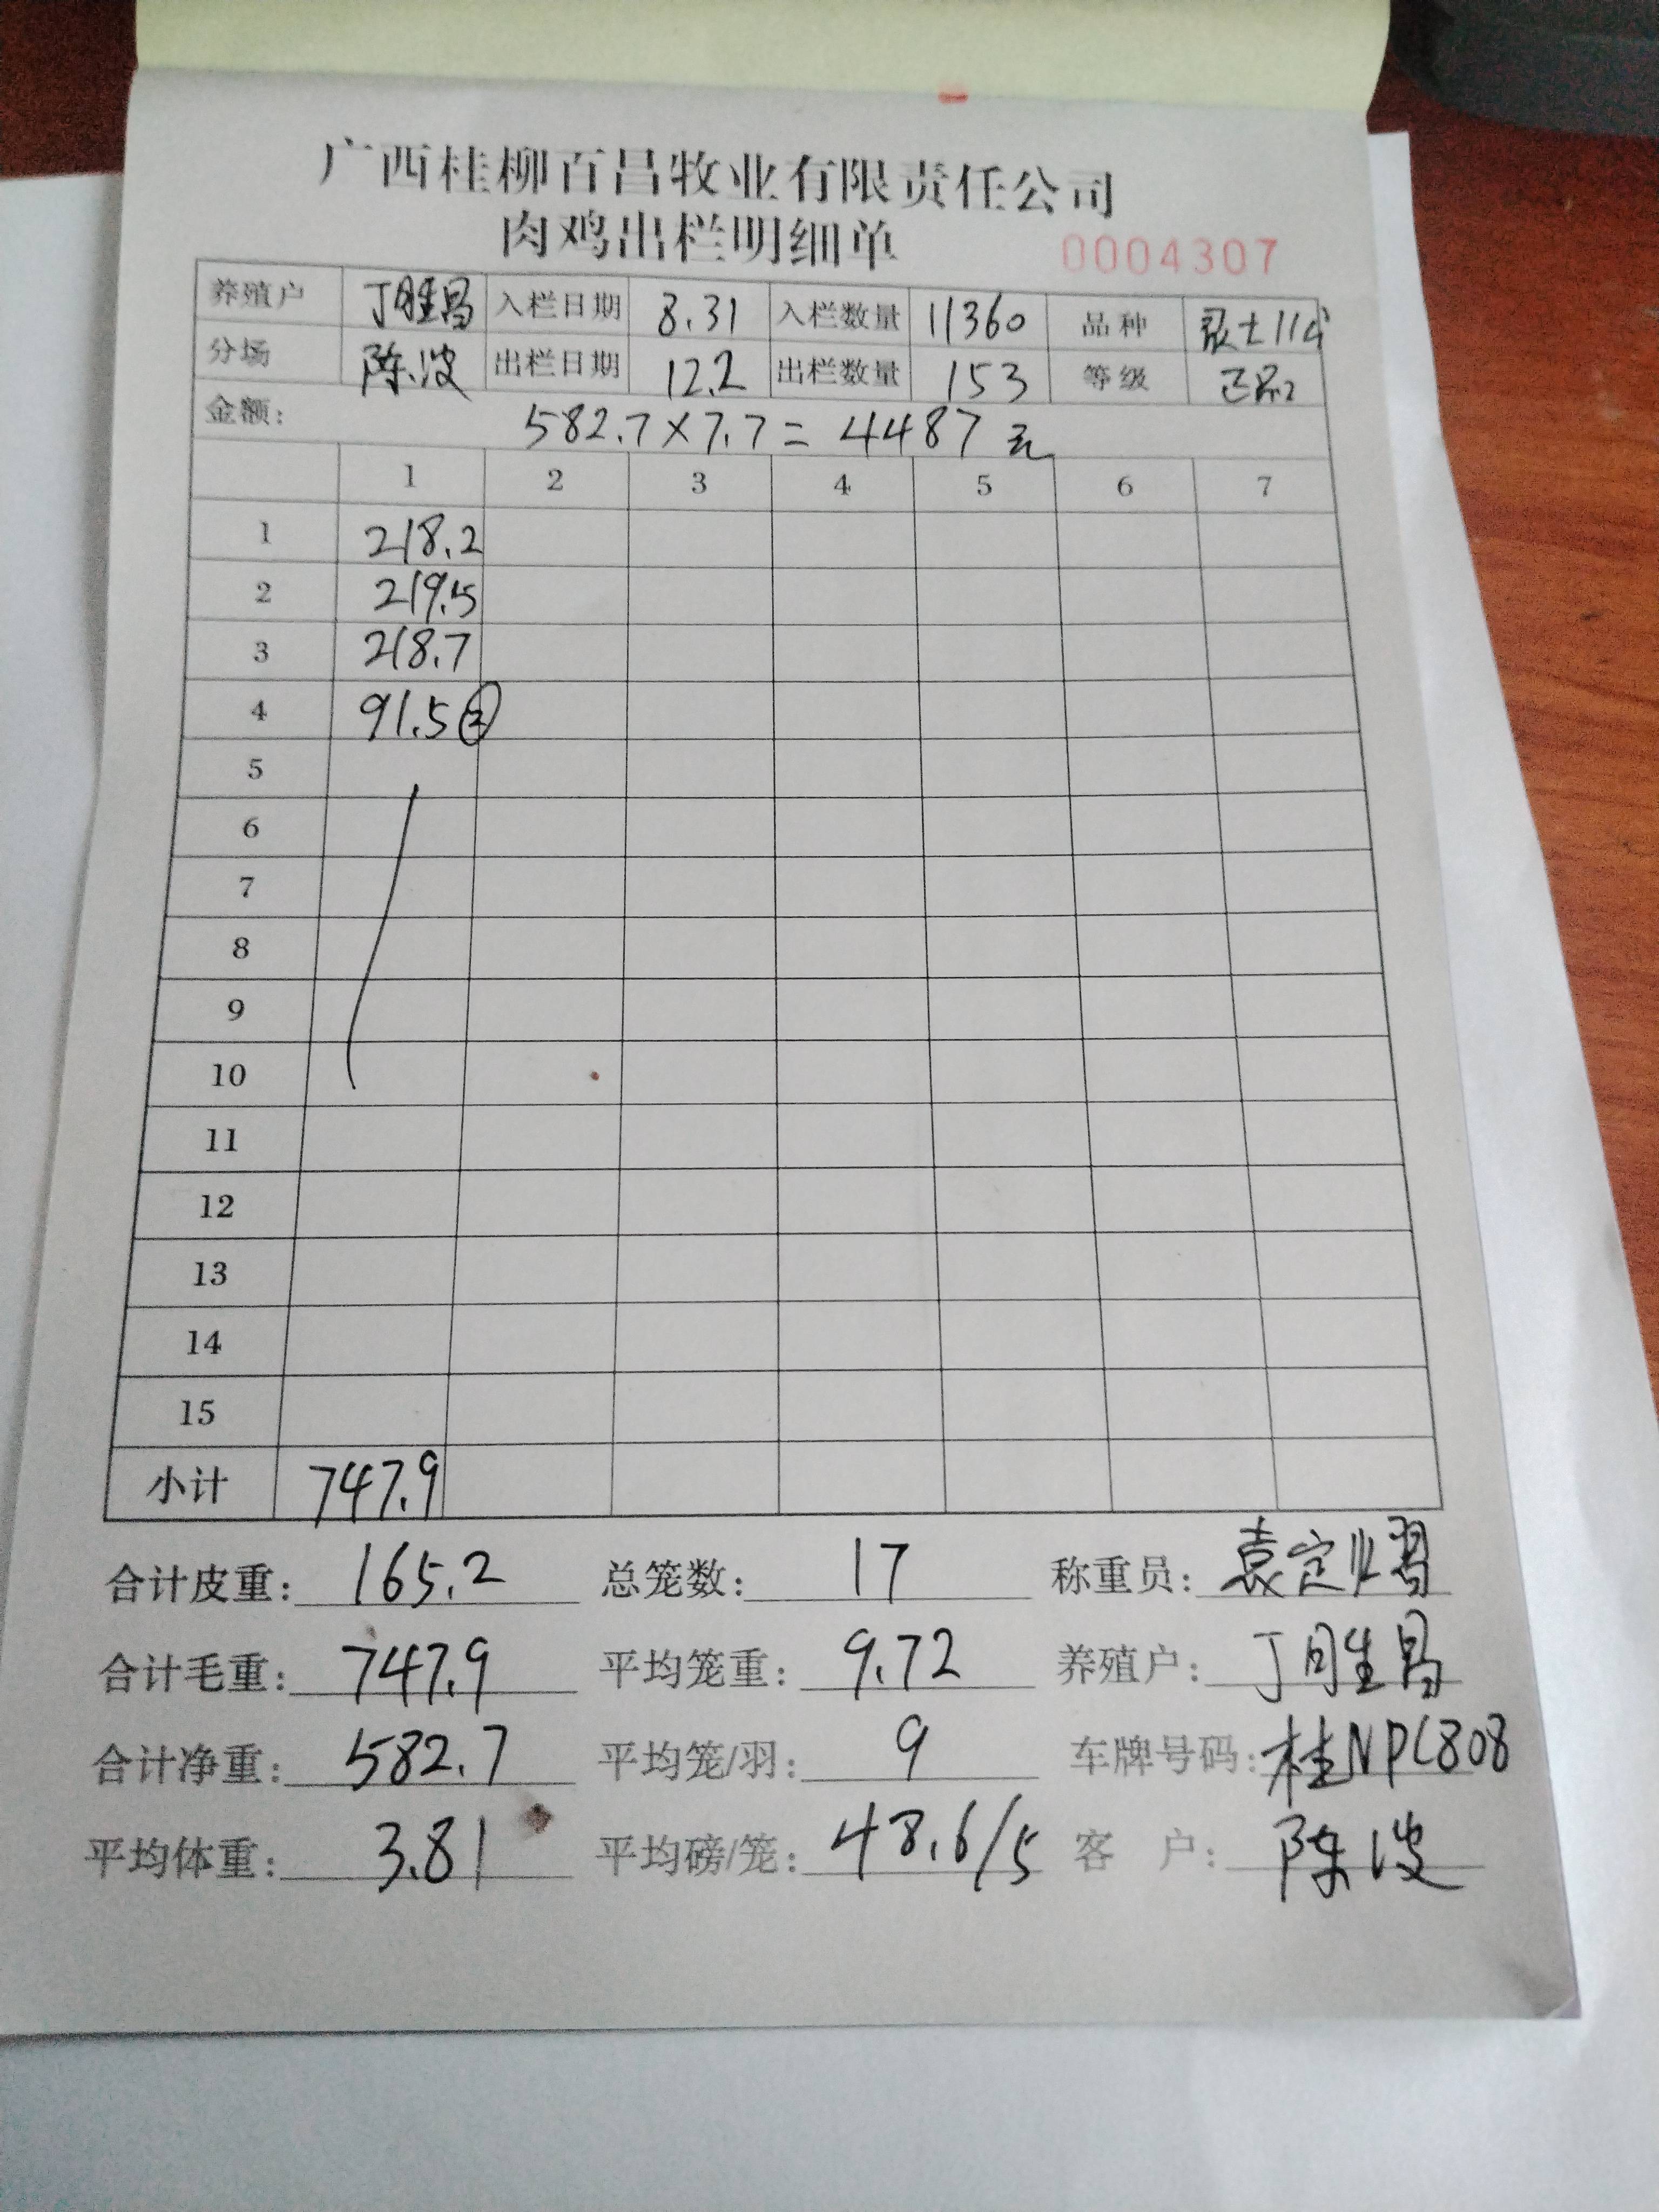 广西桂柳百昌牧业有限责任公司
肉鸡出栏明细单 0004307
养殖户 丁胜昌 入栏日期 8.31 入栏数量 11360 品种 土11
分场 陈波 出栏日期 12.2 出栏数量 153 等级 正品
金额: 582.7×7.7=4487元
1 2 3 4 5 6 7
1 218.2
2 219.5
3 218.7
4 91.5②
5
6
7
8
9
10
11
12
13
14
15
小计 747.9
合计皮重: 165.2 总笼数: 17 称重员: 袁定
合计毛重: 747.9 平均笼重: 9.72 养殖户: 丁胜昌
合计净重: 582.7 平均笼/羽: 9 车牌号码: 桂NPL808
平均体重: 3.81 平均磅/笼: 48.6/5 客户: 陈波